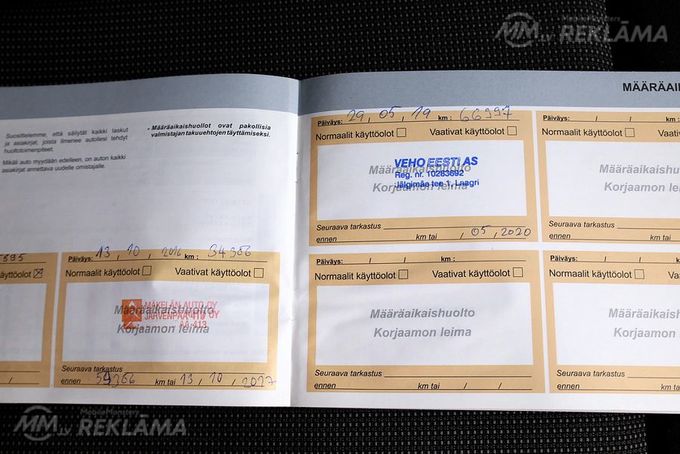 MobileMonsters
MM.LV REKLĀMA
MÄÄRÄAIK
Suosittelemme, että säilytät kaikki laskut
ja asiakirjat, joista ilmenee autollesi tehdyt
huoltotoimenpiteet.
Mikäli auto myydään edelleen, on auton kaikki
asiakirjat annettava uudelle omistajalle.
- Määräaikaishuollot ovat pakollisia
valmistajan takuuehtojen täyttämiseksi.
595
äyttöolot
/ /
Päiväys: 13, 10, 2016 km: 34366
Normaalit käyttöolot Vaativat käyttöolot
Määräaikaishuolto
Korjaamon leima
MÄKELÄN AUTO OY
JÄRVENPÄÄ
Seuraava tarkastus
ennen km tai 13, 10, 2017
Päiväys: 29, 05, 19 km: 66997
Normaalit käyttöolot Vaativat käyttöolot
Määräaikaishuolto
Korjaamon leima
VEHO EESTI AS
Reg. nr. 10283692
Jälgimäe tee 1, Laagri
Seuraava tarkastus
ennen km tai , 05, 2020
Päiväys: / /
Normaalit käyttöolot
Määräaikaishuolto
Korjaamon leima
Seuraava tarkastus
ennen km tai /
Päiväys: / / km:
Normaalit käyttöolot Vaativat käyttöolot
Määräaikaishuolto
Korjaamon leima
Seuraava tarkastus
ennen km tai / /
Päiväys: / /
Normaalit käyttöolot
Määräaikaishuolto
Korjaamon leima
Seuraava tarkastus
ennen km tai /
MobileMonsters
MM.LV REKLĀMA